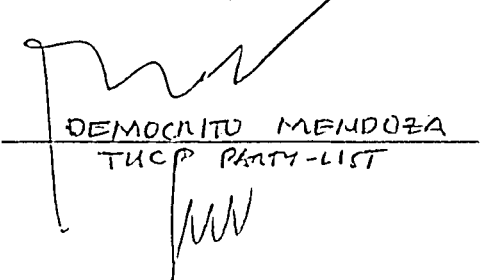 DEMOCRITO MENDOZA
TUCP PARTY-LIST